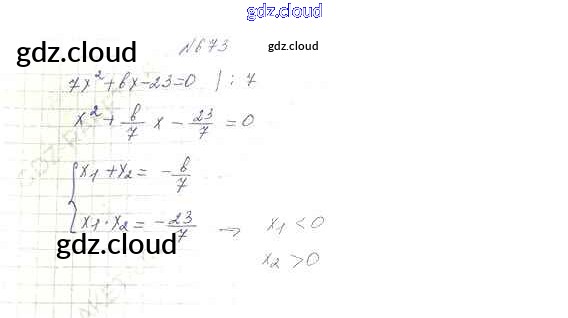 gdz.cloud
№673
gdz.cloud
gdz.cloud
7x² + bx - 23 = 0 | : 7
x² + b/7 x - 23/7 = 0
{ x₁ + x₂ = - b/7
x₁ · x₂ = - 23/7 → x₁ < 0
gdz.cloud
x₂ > 0